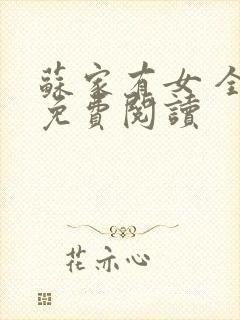 蘇家有女 全
免費閱讀
花亦心